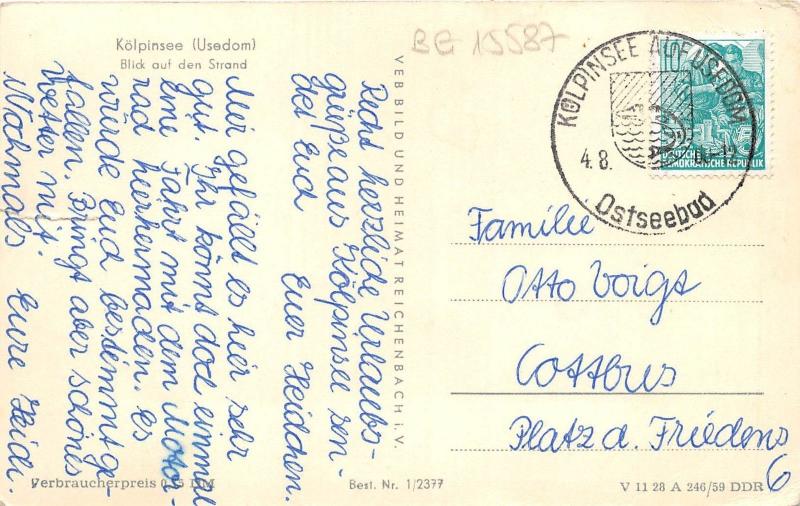 Kölpinsee (Usedom)
Blick auf den Strand
BG 15587
KÖLPINSEE AUF USEDOM
4.8.
Ostseebad
DEUTSCHE
DEMOKRATISCHE REPUBLIK
Recht herzliche Urlaubs-
grüße aus Kölpinsee sen-
det Euch
Euer Heidchen.
Mir gefällt es hier sehr
gut. Ihr könnt doch einmal
eine Fahrt mit dem Motor-
rad hierhermachen. Es
würde Euch bestimmt ge-
fallen. Bringt aber schönes
Wetter mit.
Nochmals Eure Heidi.
VEB BILD UND HEIMAT REICHENBACH i. V.
Familie
Otto Voigt
Cottbus
Platz d. Friedens
6
Verbraucherpreis DM
Best. Nr. 1/2377
V 11 28 A 246/59 DDR